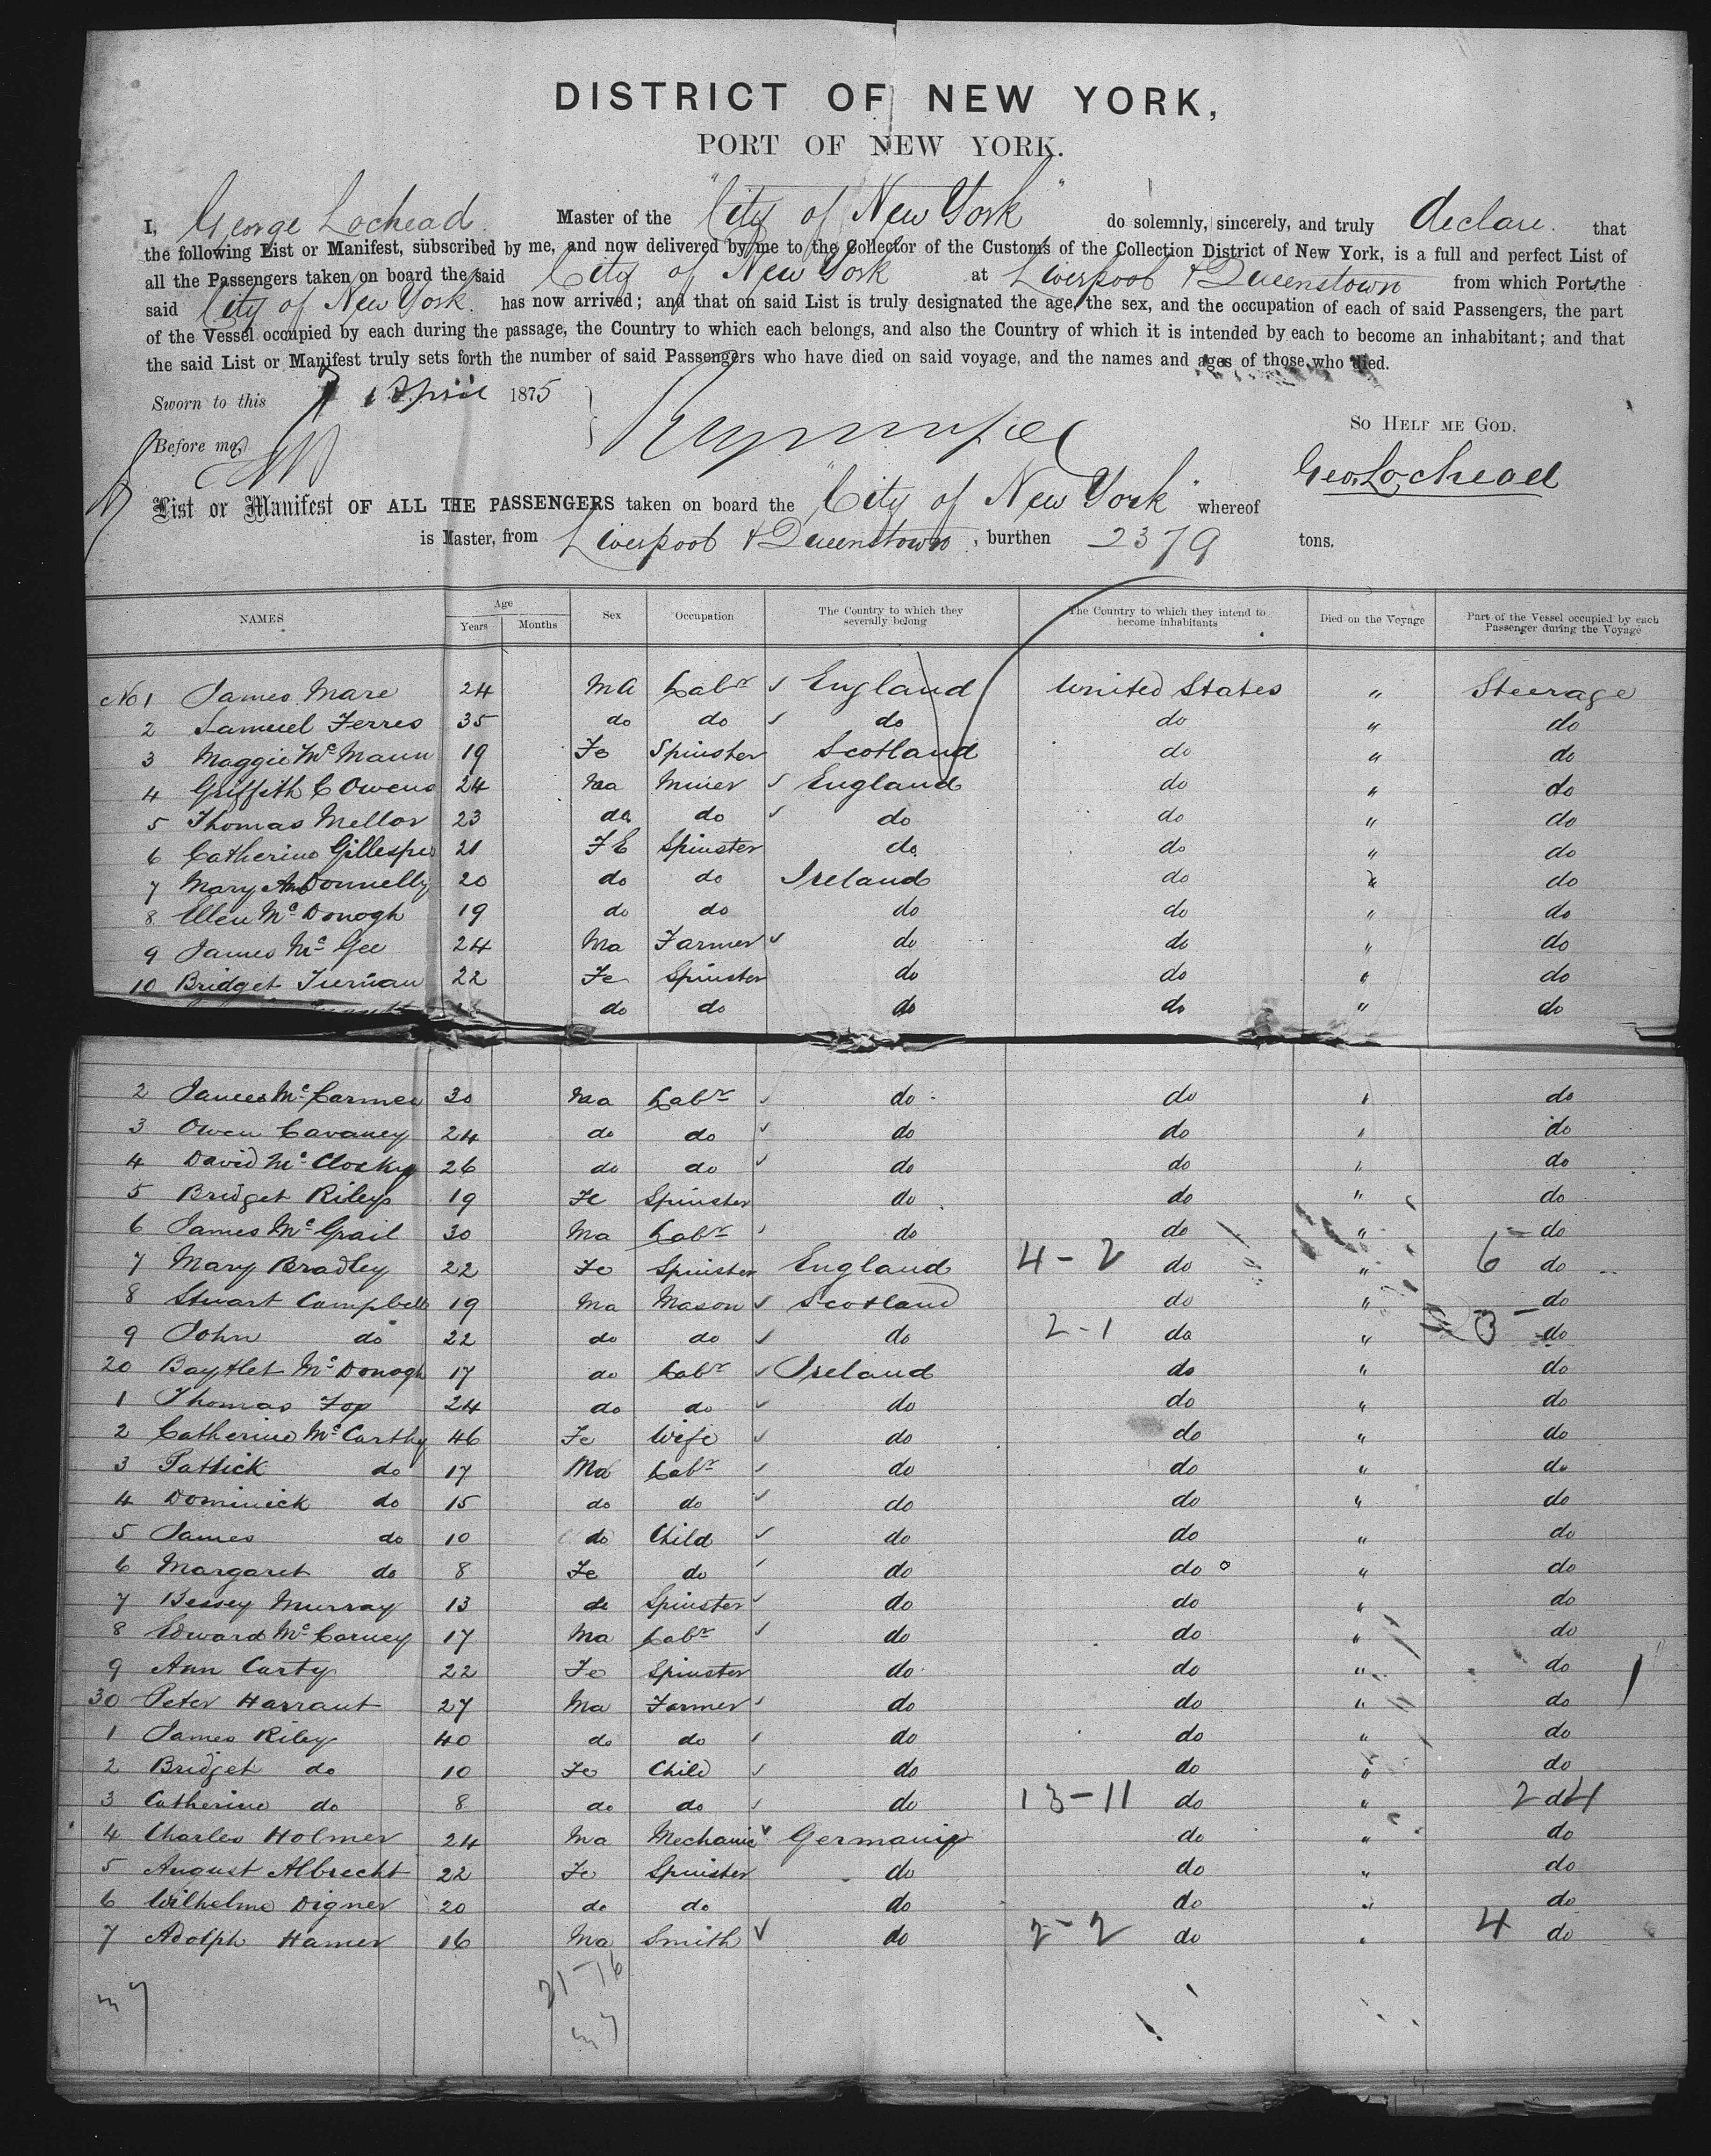 DISTRICT OF NEW YORK,
PORT OF NEW YORK.
I, George Lochead Master of the "City of New York" do solemnly, sincerely, and truly declare. that
the following List or Manifest, subscribed by me, and now delivered by me to the Collector of the Customs of the Collection District of New York, is a full and perfect List of
all the Passengers taken on board the said City of New York at Liverpool & Queenstown from which Ports the
said City of New York has now arrived; and that on said List is truly designated the age, the sex, and the occupation of each of said Passengers, the part
of the Vessel occupied by each during the passage, the Country to which each belongs, and also the Country of which it is intended by each to become an inhabitant; and that
the said List or Manifest truly sets forth the number of said Passengers who have died on said voyage, and the names and ages of those who died.
Sworn to this 7 April 1875
So Help me God.
Before me,
Geo. Lochead
List or Manifest OF ALL THE PASSENGERS taken on board the "City of New York" whereof
is Master, from Liverpool & Queenstown, burthen 2379 tons.
NAMES Age Years Months Sex Occupation The Country to which they severally belong The Country to which they intend to become inhabitants Died on the Voyage Part of the Vessel occupied by each Passenger during the Voyage
No 1 James Mare 24 Ma Labr ✓ England United States " Steerage
2 Samuel Ferres 35 do do ✓ do do " do
3 Maggie McMann 19 Fe Spinster Scotland do " do
4 Griffith C Owens 24 Ma Miner ✓ England do " do
5 Thomas Mellor 23 do do ✓ do do " do
6 Catherine Gillespie 21 FE Spinster do do " do
7 Mary Ann Donnelly 20 do do Ireland do " do
8 Ellen McDonogh 19 do do do do " do
9 James McGee 24 Ma Farmer ✓ do do " do
10 Bridget Tiernan 22 Fe Spinster do do " do
do do do do " do
2 James McCarmee 30 Ma Labr ✓ do do " do
3 Owen Cavaney 24 do do ✓ do do " do
4 David McClosky 26 do do ✓ do do " do
5 Bridget Riley 19 Fe Spinster do do " do
6 James McGrail 30 Ma Labr ✓ do do " do
7 Mary Bradley 22 Fe Spinster England 4-2 do " 6 do
8 Stuart Campbell 19 Ma Mason ✓ Scotland do " do
9 John do 22 do do ✓ do 2-1 do " 3 do
20 Baytlet McDonogh 17 do Labr ✓ Ireland do " do
1 Thomas Foy 24 do do ✓ do do " do
2 Catherine McCarthy 46 Fe Wife ✓ do do " do
3 Patrick do 17 Ma Labr ✓ do do " do
4 Dominick do 15 do do ✓ do do " do
5 James do 10 do Child ✓ do do " do
6 Margaret do 8 Fe do ✓ do do " do
7 Bessey Murray 13 do Spinster ✓ do do " do
8 Edward McCarney 17 Ma Labr ✓ do do " do
9 Ann Carty 22 Fe Spinster do do " do
30 Peter Harraut 27 Ma Farmer ✓ do do " do
1 James Riley 40 do do ✓ do do " do
2 Bridget do 10 Fe Child ✓ do do " do
3 Catherine do 8 do do ✓ do 13-11 do " 24 do
4 Charles Holmer 24 Ma Mechanic ✓ Germany do " do
5 August Albrecht 22 Fe Spinster do do " do
6 Wilhelme Digner 20 do do do do " do
7 Adolph Hamer 16 Ma Smith ✓ do 2-2 do " 4 do
21-16
37
37